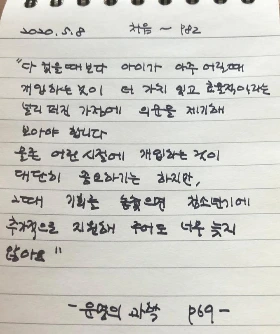 2020. 5. 8   처음 ~ p82
"다 컸을 때보다 아이가 아주 어릴때
개입하는 것이 더 가치 있고 효율적이라는
널리 퍼진 가정에 의문을 제기해
보아야 합니다
물론 어린 시절에 개입하는 것이
대단히 중요하기는 하지만,
그때 기회를 놓쳤으면 청소년기에
추가적으로 지원해 주어도 너무 늦지
않아요"
- 운명의 과학 p69 -